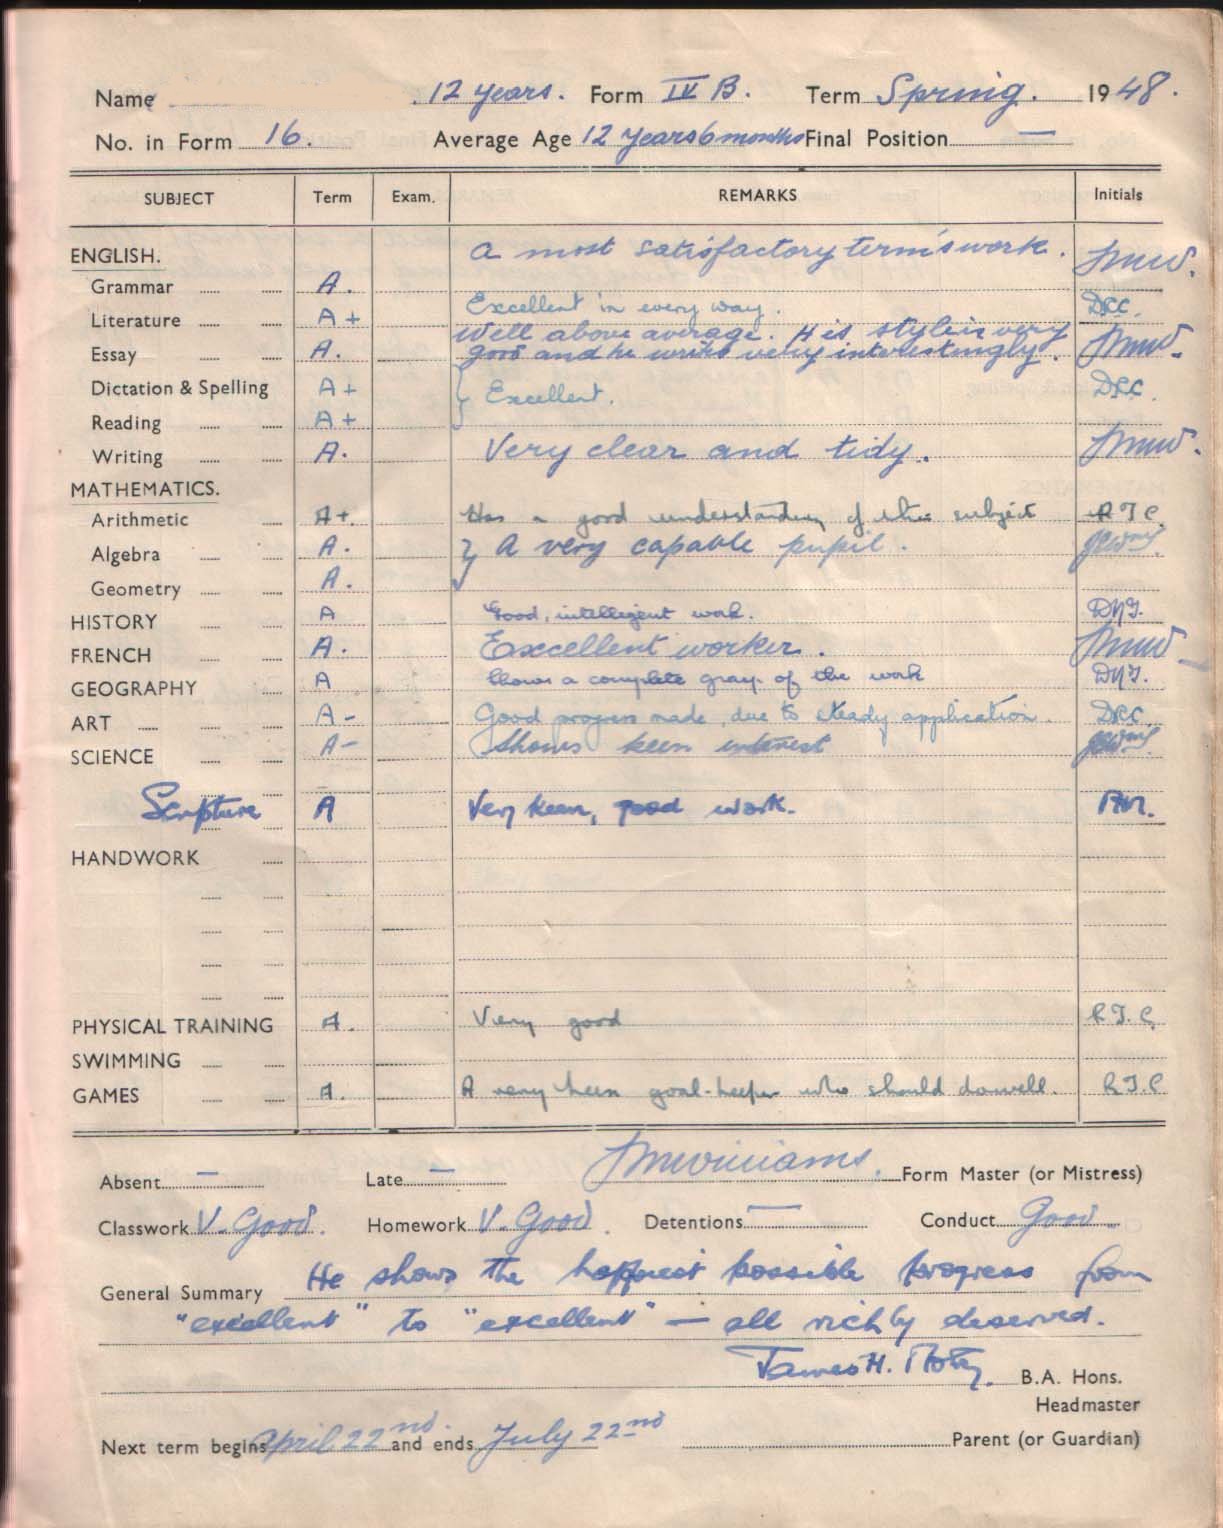 Name 12 years. Form IV B. Term Spring. 1948.
No. in Form 16. Average Age 12 years 6 months Final Position —
SUBJECT Term Exam. REMARKS Initials
ENGLISH. A most satisfactory term's work.
Grammar A.
Literature A+ Excellent in every way. DCC.
Well above average. His style is very
Essay A. good and he writes very interestingly.
Dictation & Spelling A+ Excellent. DCC.
Reading A+
Writing A. Very clear and tidy.
MATHEMATICS.
Arithmetic A+. Has a good understanding of this subject R.T.C.
Algebra A. A very capable pupil.
Geometry A.
HISTORY A Good, intelligent work.
FRENCH A. Excellent worker.
GEOGRAPHY A Shows a complete grasp of the work
ART A- Good progress made, due to steady application. DCC.
SCIENCE A- Shows keen interest
Scripture A Very keen, good work.
HANDWORK
PHYSICAL TRAINING A. Very good R.T.C.
SWIMMING
GAMES A. A very keen goal-keeper who should do well. R.T.C
Absent — Late — Form Master (or Mistress)
Classwork V. Good. Homework V. Good. Detentions — Conduct Good.
General Summary He shows the happiest possible progress from
"excellent" to "excellent" — all richly deserved.
James H. B.A. Hons.
Headmaster
Next term begins April 22nd. and ends July 22nd Parent (or Guardian)